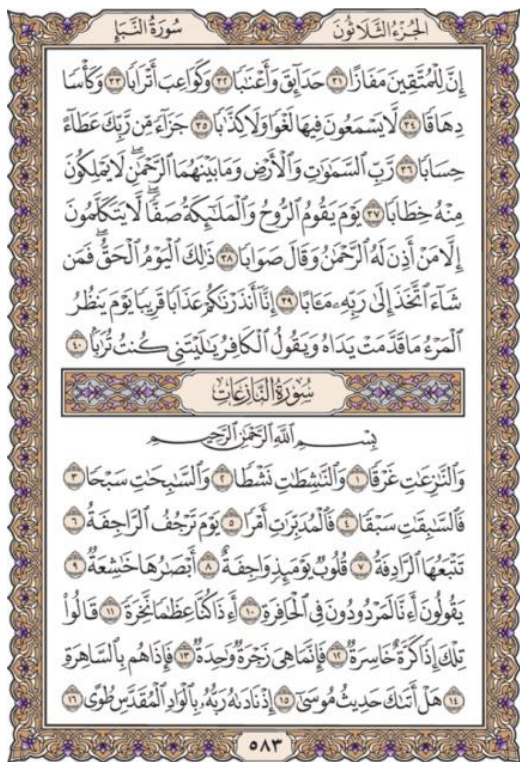 سُورَةُ النَّبَإِ
الجُزْءُ الثَّلَاثُونَ
إِنَّ لِلْمُتَّقِينَ مَفَازًا ٣١ حَدَائِقَ وَأَعْنَٰبًا ٣٢ وَكَوَاعِبَ أَتْرَابًا ٣٣ وَكَأْسًا
دِهَاقًا ٣٤ لَّا يَسْمَعُونَ فِيهَا لَغْوًا وَلَا كِذَّٰبًا ٣٥ جَزَآءً مِّن رَّبِّكَ عَطَآءً
حِسَابًا ٣٦ رَّبِّ السَّمَٰوَٰتِ وَالْأَرْضِ وَمَا بَيْنَهُمَا الرَّحْمَٰنِ ۖ لَا يَمْلِكُونَ
مِنْهُ خِطَابًا ٣٧ يَوْمَ يَقُومُ الرُّوحُ وَالْمَلَٰٓئِكَةُ صَفًّا ۖ لَّا يَتَكَلَّمُونَ
إِلَّا مَنْ أَذِنَ لَهُ الرَّحْمَٰنُ وَقَالَ صَوَابًا ٣٨ ذَٰلِكَ الْيَوْمُ الْحَقُّ ۖ فَمَن
شَآءَ اتَّخَذَ إِلَىٰ رَبِّهِۦ مَـَٔابًا ٣٩ إِنَّآ أَنذَرْنَٰكُمْ عَذَابًا قَرِيبًا يَوْمَ يَنظُرُ
الْمَرْءُ مَا قَدَّمَتْ يَدَاهُ وَيَقُولُ الْكَافِرُ يَٰلَيْتَنِي كُنتُ تُرَٰبًا ٤٠
سُورَةُ النَّازِعَاتِ
بِسْمِ اللَّهِ الرَّحْمَٰنِ الرَّحِيمِ
وَالنَّٰزِعَٰتِ غَرْقًا ١ وَالنَّٰشِطَٰتِ نَشْطًا ٢ وَالسَّٰبِحَٰتِ سَبْحًا ٣
فَالسَّٰبِقَٰتِ سَبْقًا ٤ فَالْمُدَبِّرَٰتِ أَمْرًا ٥ يَوْمَ تَرْجُفُ الرَّاجِفَةُ ٦
تَتْبَعُهَا الرَّادِفَةُ ٧ قُلُوبٌ يَوْمَئِذٍ وَاجِفَةٌ ٨ أَبْصَٰرُهَا خَٰشِعَةٌ ٩
يَقُولُونَ أَءِنَّا لَمَرْدُودُونَ فِي الْحَافِرَةِ ١٠ أَءِذَا كُنَّا عِظَٰمًا نَّخِرَةً ١١ قَالُوا۟
تِلْكَ إِذًا كَرَّةٌ خَاسِرَةٌ ١٢ فَإِنَّمَا هِيَ زَجْرَةٌ وَٰحِدَةٌ ١٣ فَإِذَا هُم بِالسَّاهِرَةِ
١٤ هَلْ أَتَىٰكَ حَدِيثُ مُوسَىٰٓ ١٥ إِذْ نَادَىٰهُ رَبُّهُۥ بِالْوَادِ الْمُقَدَّسِ طُوًى ١٦
٥٨٣